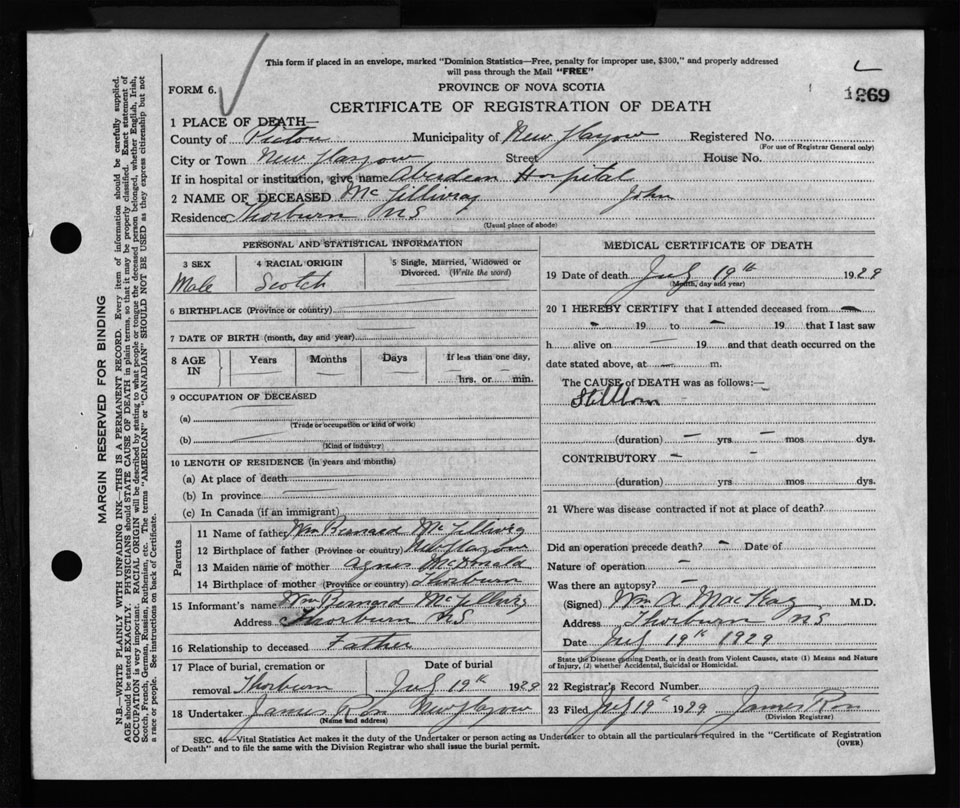 This form if placed in an envelope, marked "Dominion Statistics—Free, penalty for improper use, $300," and properly addressed
will pass through the Mail "FREE"
FORM 6.
PROVINCE OF NOVA SCOTIA
1269
CERTIFICATE OF REGISTRATION OF DEATH
1 PLACE OF DEATH—
County of Pictou Municipality of New Glasgow Registered No.
(For use of Registrar General only)
City or Town New Glasgow Street House No.
If in hospital or institution, give name Aberdeen Hospital
2 NAME OF DECEASED McGillivray John
Residence Thorburn NS
(Usual place of abode)
PERSONAL AND STATISTICAL INFORMATION
3 SEX 4 RACIAL ORIGIN 5 Single, Married, Widowed or
Divorced. (Write the word)
Male Scotch
6 BIRTHPLACE (Province or country)
7 DATE OF BIRTH (month, day and year)
8 AGE IN Years Months Days If less than one day,
hrs. or min.
9 OCCUPATION OF DECEASED
(a)
(Trade or occupation or kind of work)
(b)
(Kind of industry)
10 LENGTH OF RESIDENCE (in years and months)
(a) At place of death
(b) In province
(c) In Canada (if an immigrant)
Parents
11 Name of father Wm Bernard McGillivray
12 Birthplace of father (Province or country) New Glasgow
13 Maiden name of mother Agnes McDonald
14 Birthplace of mother (Province or country) Thorburn
15 Informant's name Wm Bernard McGillivray
Address Thorburn NS
16 Relationship to deceased Father
17 Place of burial, cremation or Date of burial
removal Thorburn July 19th 1929
18 Undertaker James New Glasgow
(Name and address)
MEDICAL CERTIFICATE OF DEATH
19 Date of death July 19th 1929
(Month, day and year)
20 I HEREBY CERTIFY that I attended deceased from —
— 19 to — 19 that I last saw
h alive on — 19 and that death occurred on the
date stated above, at — m.
The CAUSE of DEATH was as follows:—
Stillborn
(duration) — yrs — mos dys.
CONTRIBUTORY — —
(duration) yrs mos dys.
21 Where was disease contracted if not at place of death?
Did an operation precede death? — Date of
Nature of operation —
Was there an autopsy? —
(Signed) Wm X MacKay M.D.
Address Thorburn NS
Date July 19th 1929
State the Disease causing Death, or in death from Violent Causes, state (1) Means and Nature
of Injury, (2) whether Accidental, Suicidal or Homicidal.
22 Registrar's Record Number
23 Filed July 19th 1929 James
(Division Registrar)
SEC. 46—Vital Statistics Act makes it the duty of the Undertaker or person acting as Undertaker to obtain all the particulars required in the "Certificate of Registration
of Death" and to file the same with the Division Registrar who shall issue the burial permit.
(OVER)
MARGIN RESERVED FOR BINDING
N.B.—WRITE PLAINLY WITH UNFADING INK—THIS IS A PERMANENT RECORD. Every item of information should be carefully supplied.
AGE should be stated EXACTLY. PHYSICIANS should STATE CAUSE OF DEATH in plain terms, so that it may be properly classified. Exact statement of
OCCUPATION is very important. RACIAL ORIGIN will be described by stating to what people or tongue the deceased person belonged, whether English, Irish,
Scotch, French, German, Russian, Ruthenian, etc. The terms "AMERICAN" or "CANADIAN" SHOULD NOT BE USED as they express citizenship but not
a race or people. See instructions on back of Certificate.